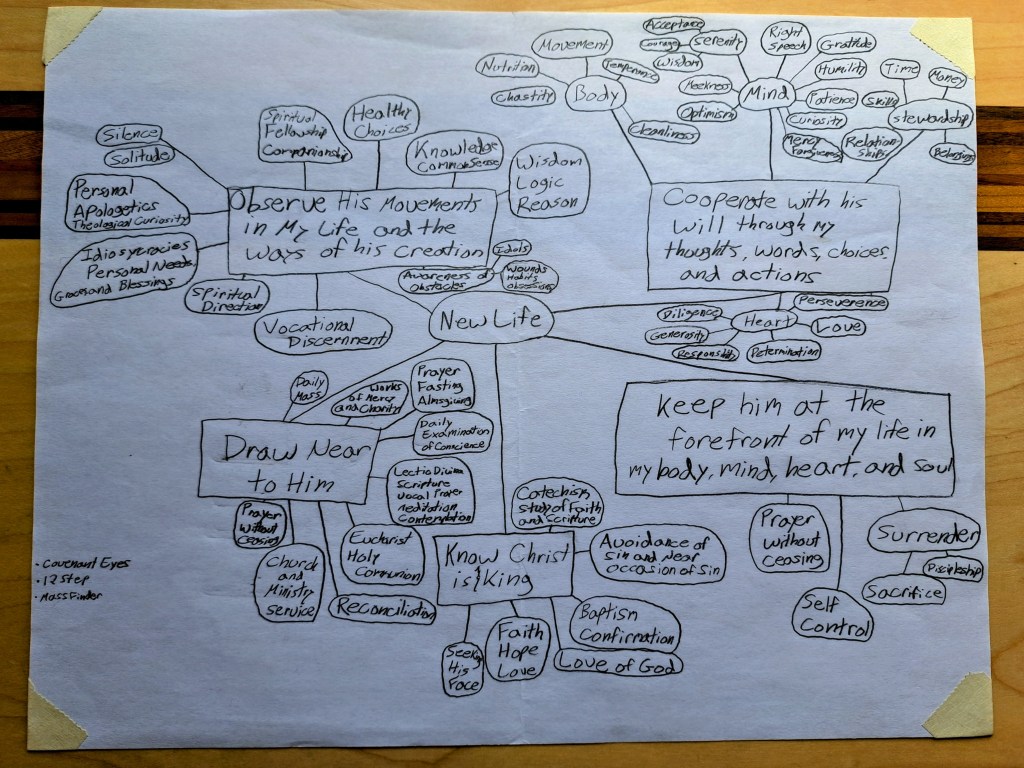 Silence
Solitude
Personal
Apologetics
Theological Curiosity
Idiosyncracies
Personal Needs
Graces and Blessings
Spiritual
Fellowship
Companionship
Healthy
Choices
Knowledge
Common Sense
Wisdom
Logic
Reason
Observe His Movements
in My Life and the
ways of his creation
Spiritual
Direction
Vocational
Discernment
Awareness of
Obstacles
Idols
Wounds
Habits
Obsessions
New Life
Movement
Nutrition
Temperance
Chastity
Body
Cleanliness
Acceptance
Courage
Serenity
Wisdom
Right
Speech
Gratitude
Humility
Meekness
Mind
Patience
Optimism
Curiosity
Mercy
Forgiveness
Time
Money
Skills
Stewardship
Relation-
ships
Belongings
Cooperate with his
will through my
thoughts, words, choices,
and actions
Perseverence
Diligence
Heart
Love
Generosity
Responsibility
Determination
Daily
Mass
Works
of Mercy
and Charity
Prayer
Fasting
Almsgiving
Draw Near
to Him
Daily
Examination
of Conscience
Lectio Divina
Scripture
Vocal Prayer
Meditation
Contemplation
Prayer
Without
Ceasing
Church
and
Ministry
Service
Eucharist
Holy
Communion
Reconciliation
Know Christ
is King
Catechism
Study of Faith
and Scripture
Avoidance of
Sin and Near
Occasion of Sin
Baptism
Confirmation
Love of God
Faith
Hope
Love
His
Face
Keep him at the
forefront of my life in
my body, mind, heart, and soul
Prayer
Without
Ceasing
Self
Control
Surrender
Discipleship
Sacrifice
• Covenant Eyes
• 12 Step
• Mass Finder